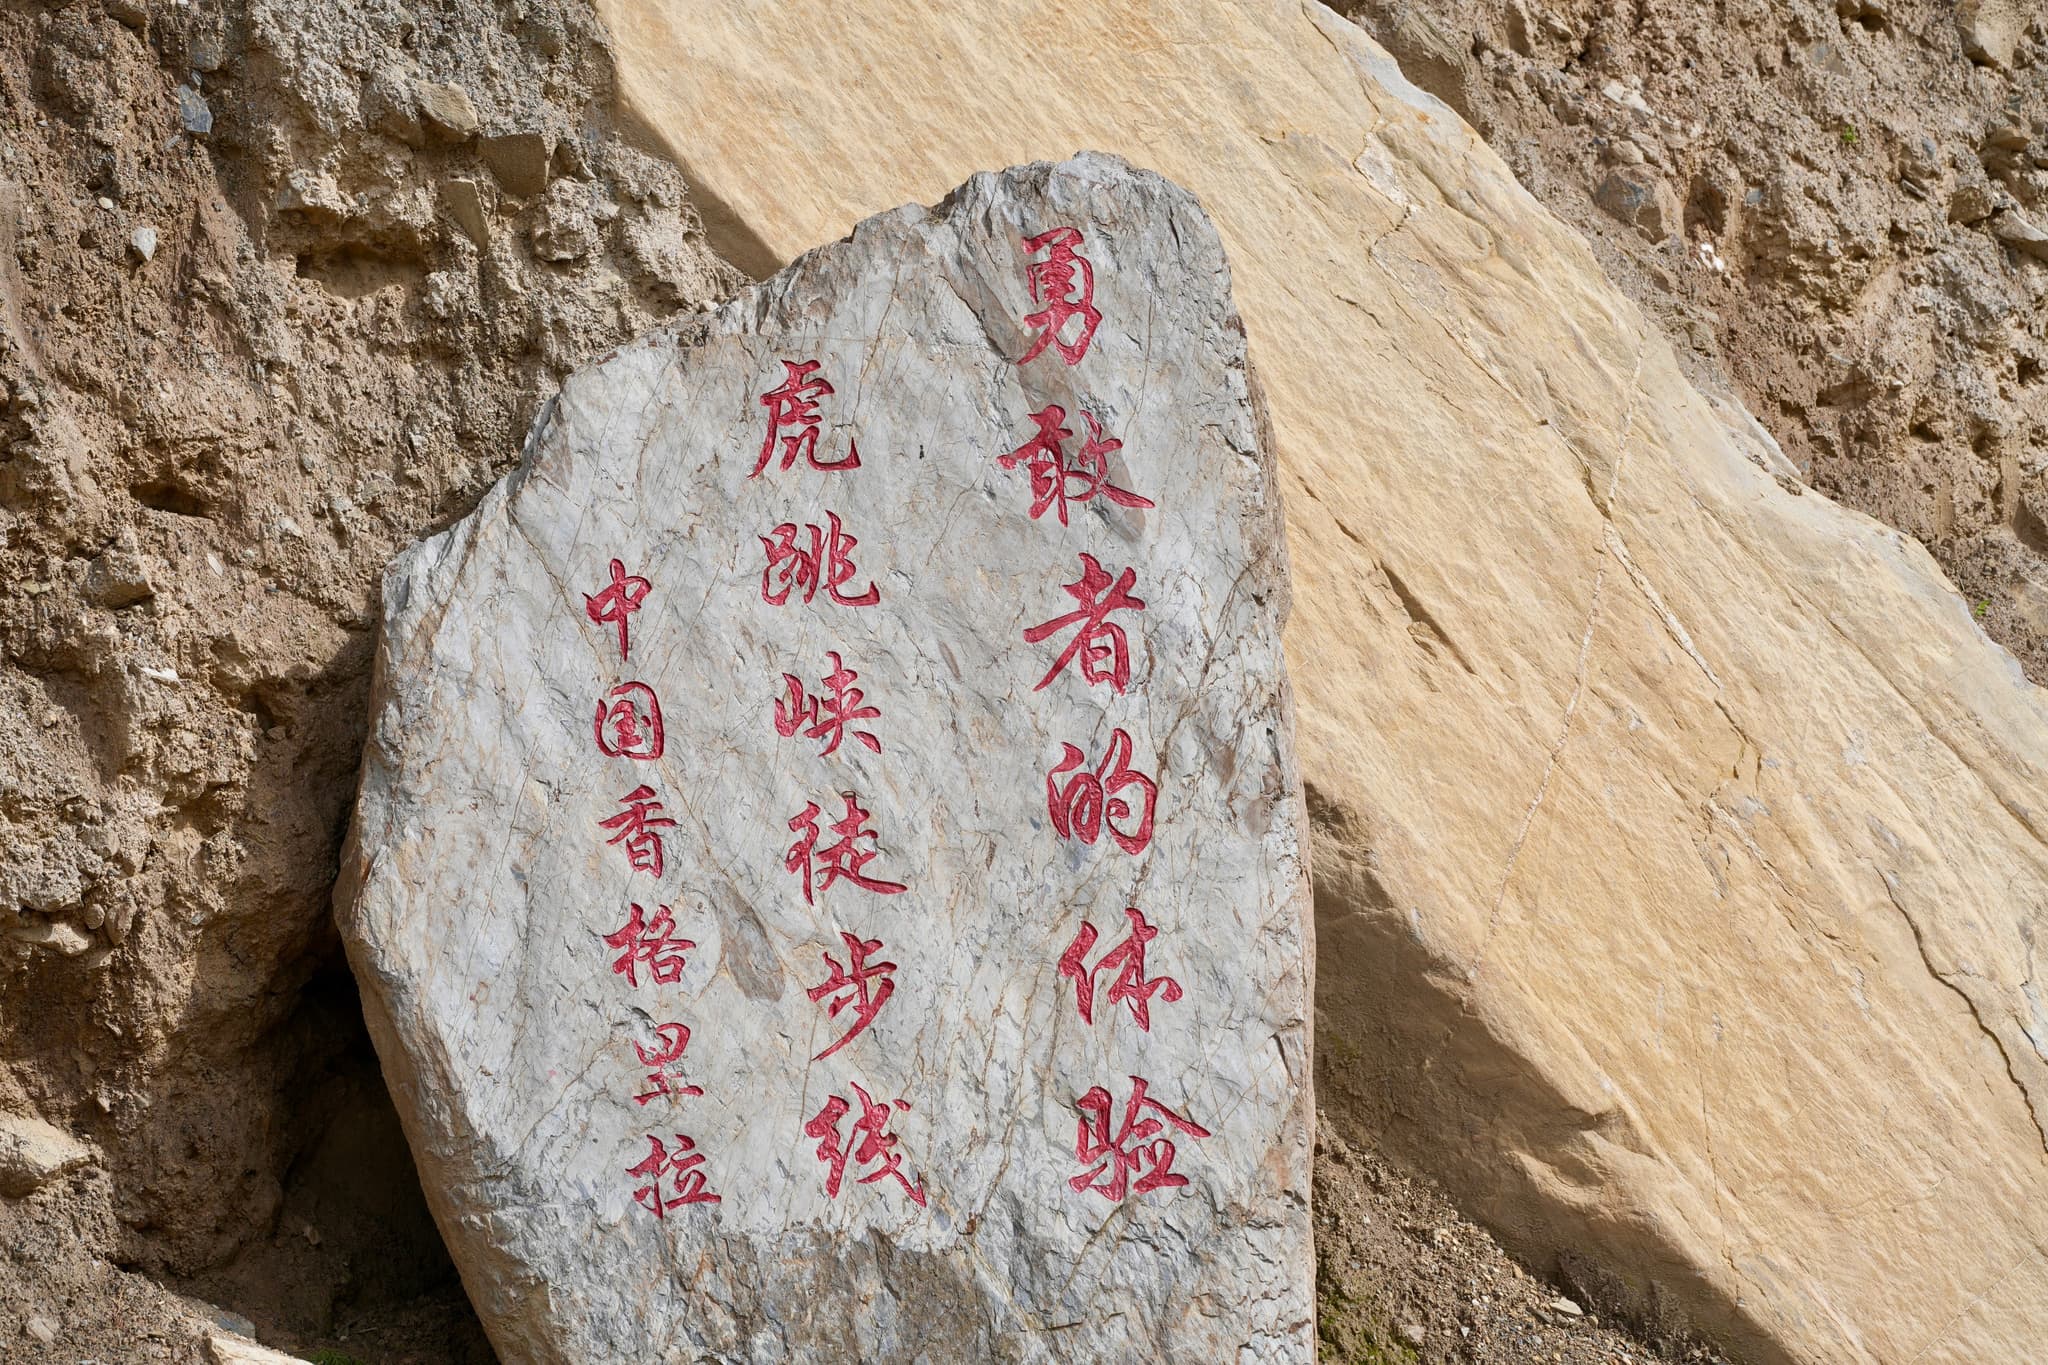 勇敢者的体验
虎跳峡徒步线
中国香格里拉